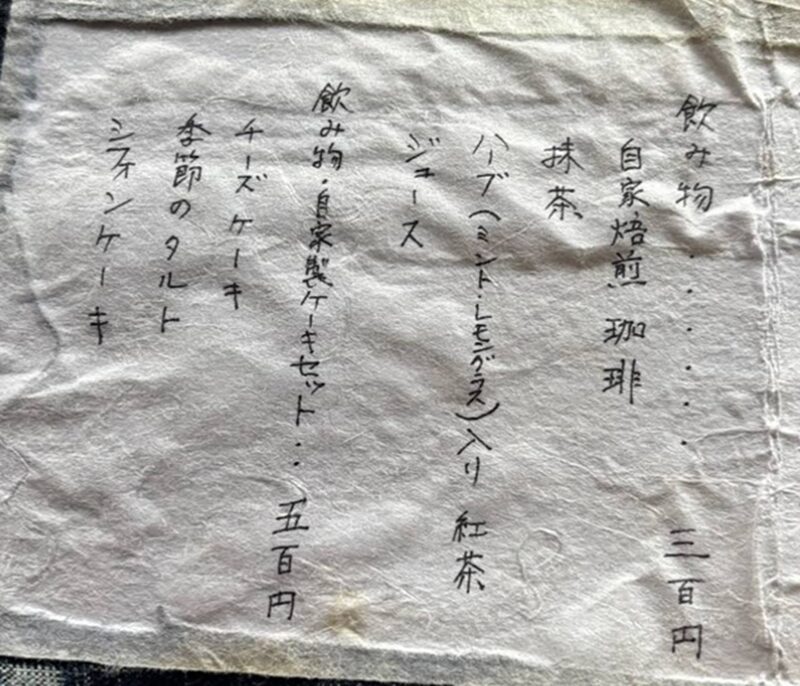 飲み物・・・・・・三百円
自家焙煎珈琲
抹茶
ハーブ(ミント・レモングラス)入り 紅茶
ジュース
飲み物・自家製ケーキセット・・五百円
チーズケーキ
季節のタルト
シフォンケーキ